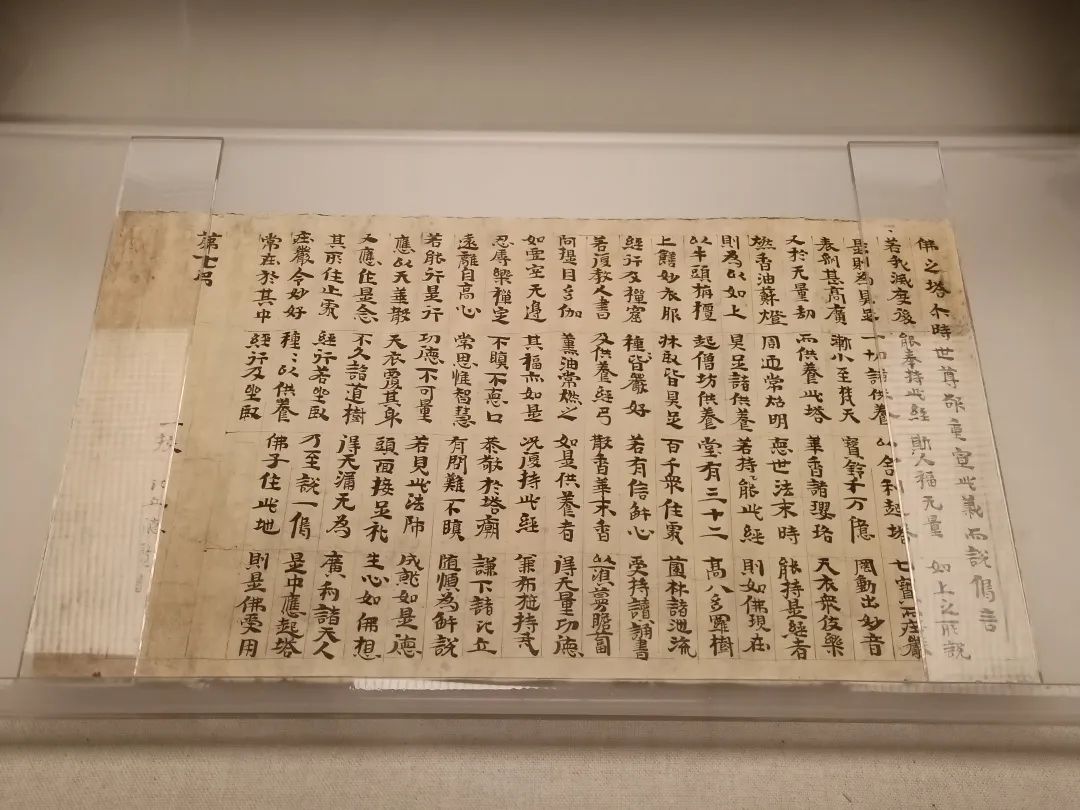 佛之塔 尒時世尊欲重宣此義而說偈言
若我滅度後 能奉持此經 斯人福无量 如上之所說
是則為具足 一切諸供養 以舍利起塔 七寶而莊嚴
表刹甚高廣 漸小至梵天 寶鈴千万億 風動出妙音
又於无量劫 而供養此塔 華香諸瓔珞 天衣衆伎樂
燃香油蘇燈 周迊常照明 惡世法末時 能持是經者
則為以如上 具足諸供養 若持能此經 則如佛現在
以牛頭栴檀 起僧坊供養 堂有三十二 高八多羅樹
上饍妙衣服 牀臥皆具足 百千衆住處 園林諸池流
經行及禪窟 種種皆嚴好 若有信解心 受持讀誦書
若復教人書 及供養經弓 散香華末香 以湏曼瞻蔔
阿提目多伽 薰油常燃之 如是供養者 得无量功德
如虛空无邊 其福亦如是 況復持此經 兼布施持戒
忍辱樂禪定 不瞋不惡口 恭敬於塔廟 謙下諸比丘
遠離自高心 常思惟智慧 有問難不瞋 隨順為解說
若能行是行 功德不可量 若見此法師 成就如是德
應以天華散 天衣覆其身 頭面接足礼 生心如佛想
又應作是念 不久詣道樹 得无漏无為 廣利諸天人
其所住止處 經行若坐臥 乃至說一偈 是中應起塔
莊嚴令妙好 種〻以供養 佛子住此地 則是佛受用
常在於其中 經行及坐臥
第七弓
一校